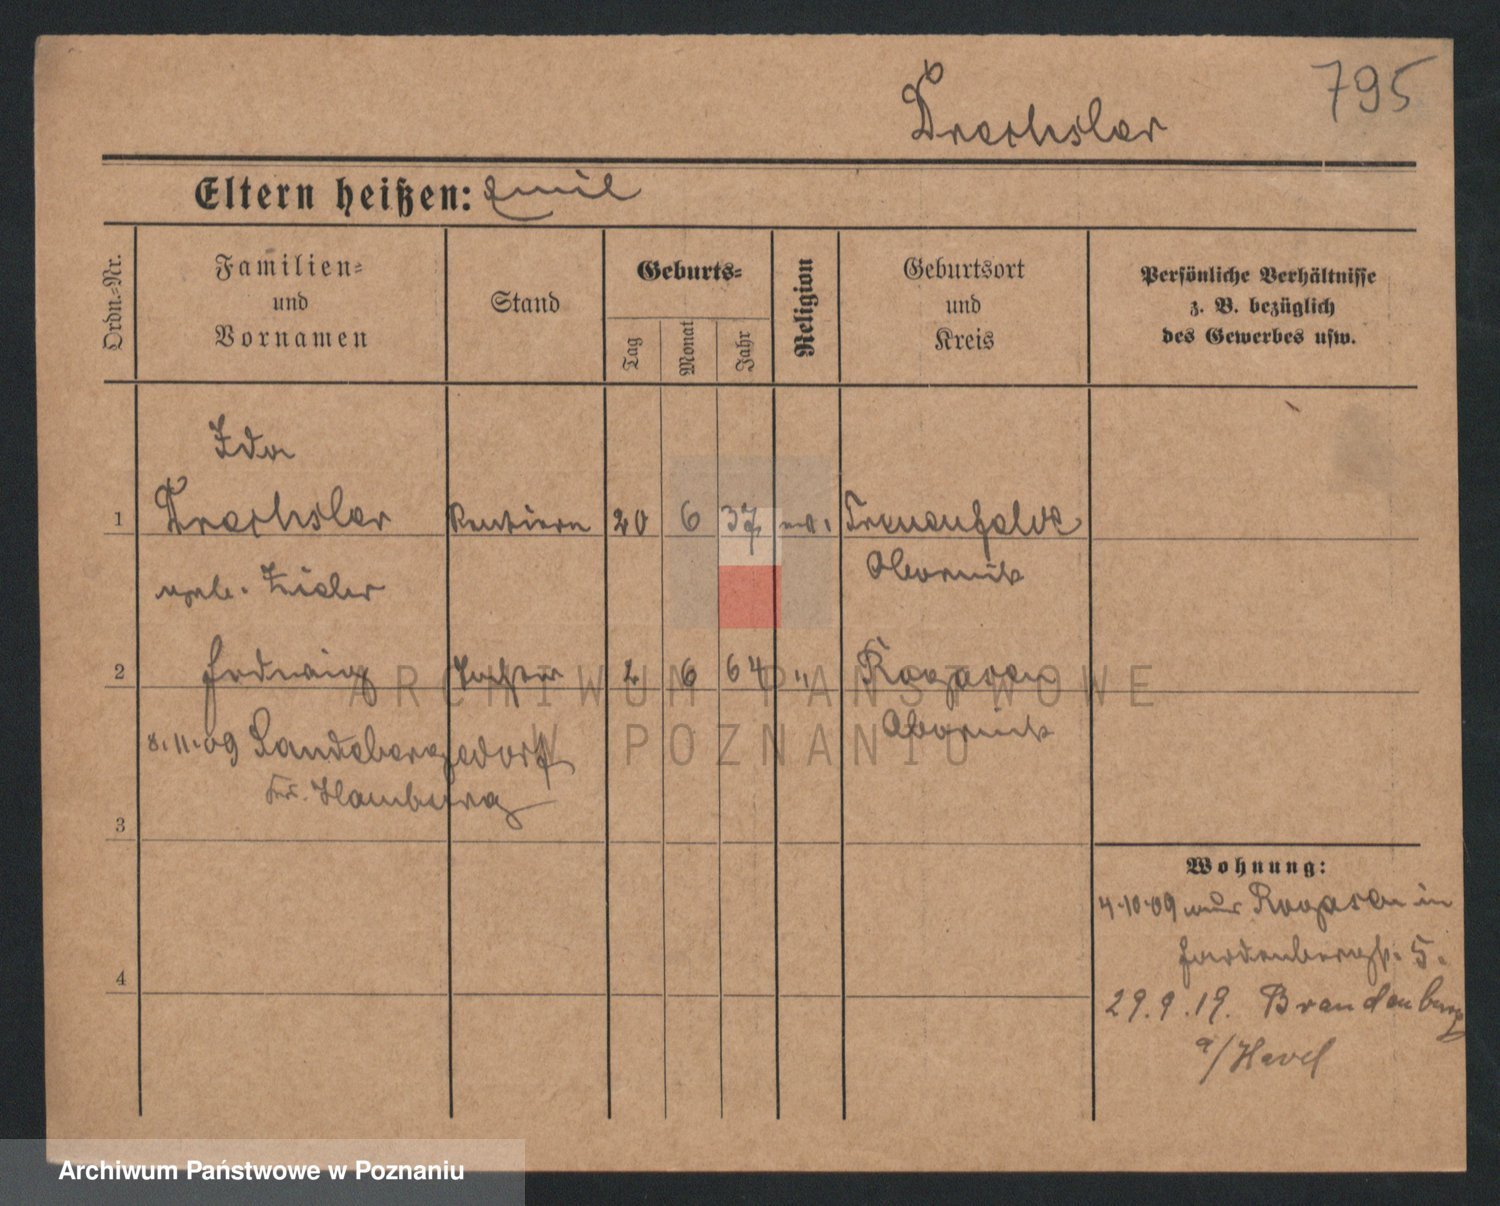 795
Drechsler
Eltern heißen: Emil
Ordn.-Nr.
Familien-
und
Vornamen
Stand
Geburts-
Tag
Monat
Jahr
Religion
Geburtsort
und
Kreis
Persönliche Verhältnisse
z. B. bezüglich
des Gewerbes usw.
Ida
1 Drechsler Rentiere 20 6 37 ev. Treuenfelde
geb. Zidler Obornik
2 Hedwig Tochter 2 6 64 " Rogasen
8.11.09 Obornik
Hamburg
3
Wohnung:
4.10.09 aus Rogasen in
Hardenbergstr. 5.
4
29.9.19. Brandenburg
a/Havel
ARCHIWUM PAŃSTWOWE
W POZNANIU
Archiwum Państwowe w Poznaniu